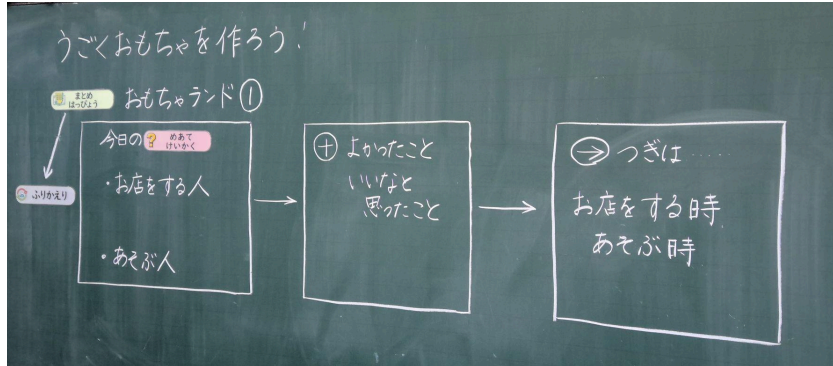 うごくおもちゃを作ろう!
まとめ
はっぴょう
おもちゃランド①
ふりかえり
今日の
めあて
けいかく
・お店をする人
・あそぶ人
⊕ よかったこと
いいなと
思ったこと
→ つぎは……
お店をする時
あそぶ時